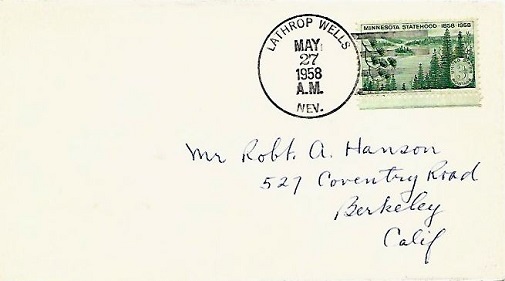 LATHROP WELLS
MAY
27
1958
A.M.
NEV.
MINNESOTA STATEHOOD 1858 1958
3¢
Mr Robt. A. Hanson
527 Coventry Road
Berkeley
Calif